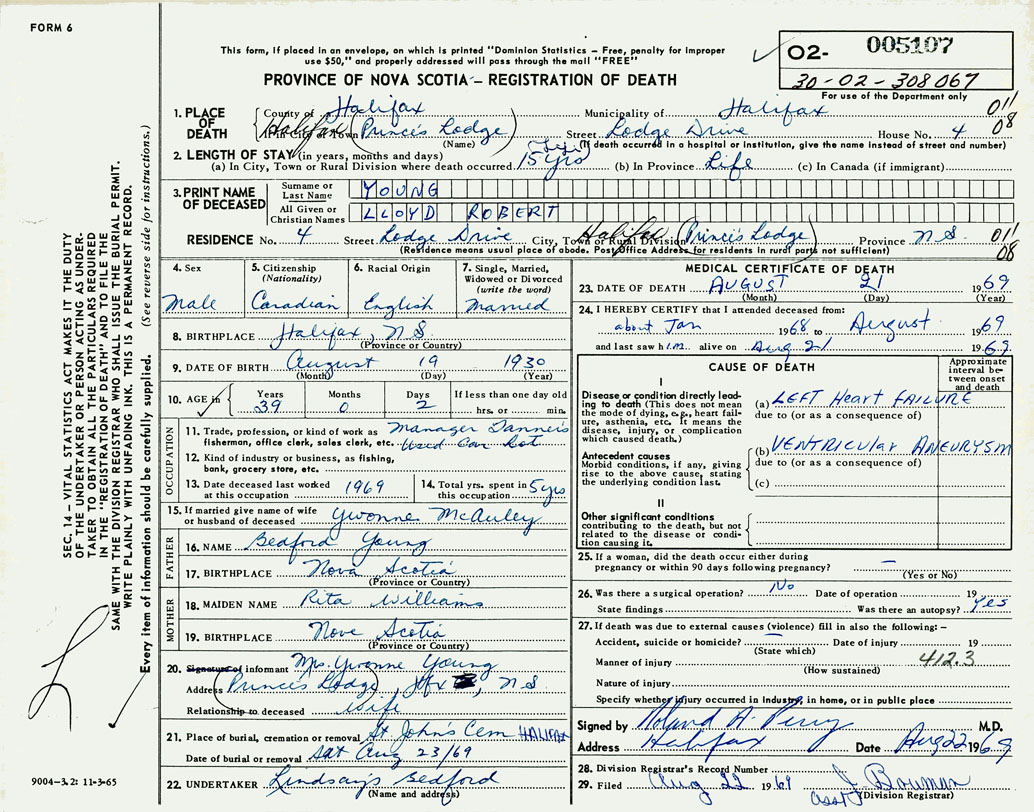 FORM 6
This form, if placed in an envelope, on which is printed "Dominion Statistics – Free, penalty for improper
use $50," and properly addressed will pass through the mail "FREE"
PROVINCE OF NOVA SCOTIA – REGISTRATION OF DEATH
O2- 005107
30-02-308067
For use of the Department only
1. PLACE OF DEATH
County of Halifax Municipality of Halifax 011
Halifax (Princes Lodge) Street Lodge Drive House No. 4 08
(Name) (If death occurred in a hospital or institution, give the name instead of street and number)
2. LENGTH OF STAY (in years, months and days)
(a) In City, Town or Rural Division where death occurred 15 yrs (b) In Province Life (c) In Canada (if immigrant)
3. PRINT NAME OF DECEASED
Surname or Last Name YOUNG
All Given or Christian Names LLOYD ROBERT
RESIDENCE No. 4 Street Lodge Drive City, Town or Rural Division Halifax (Princes Lodge) Province N.S. 011
(Residence means usual place of abode. Post Office Address for residents in rural part not sufficient) 08
4. Sex Male
5. Citizenship (Nationality) Canadian
6. Racial Origin English
7. Single, Married, Widowed or Divorced (write the word) Married
8. BIRTHPLACE Halifax, N S
(Province or Country)
9. DATE OF BIRTH August 19 1930
(Month) (Day) (Year)
10. AGE in Years 39 Months 0 Days 2 If less than one day old hrs. or min.
OCCUPATION
11. Trade, profession, or kind of work as fisherman, office clerk, sales clerk, etc. Manager Tanner's Used Car Lot
12. Kind of industry or business, as fishing, bank, grocery store, etc.
13. Date deceased last worked at this occupation 1969
14. Total yrs. spent in this occupation 5 yrs
15. If married give name of wife or husband of deceased Yvonne McAuley
FATHER
16. NAME Bedford Young
17. BIRTHPLACE Nova Scotia
(Province or Country)
MOTHER
18. MAIDEN NAME Rita Williams
19. BIRTHPLACE Nova Scotia
(Province or Country)
20. Signature of informant Mrs. Yvonne Young
Address (Princes Lodge) Hfx , N S
Relationship to deceased Wife
21. Place of burial, cremation or removal St John's Cem HALIFAX
Date of burial or removal Sat Aug 23/69
22. UNDERTAKER Lindsay's Bedford
(Name and address)
MEDICAL CERTIFICATE OF DEATH
23. DATE OF DEATH AUGUST 21 1969
(Month) (Day) (Year)
24. I HEREBY CERTIFY that I attended deceased from:
about Jan 1968 to August 1969
and last saw him alive on Aug 21 1969
CAUSE OF DEATH
Approximate interval between onset and death
I
Disease or condition directly leading to death (This does not mean the mode of dying, e.g., heart failure, asthenia, etc. It means the disease, injury, or complication which caused death.)
(a) LEFT Heart FAILURE
due to (or as a consequence of)
Antecedent causes
Morbid conditions, if any, giving rise to the above cause, stating the underlying condition last.
(b) VENTRICULAR ANEURYSM
due to (or as a consequence of)
(c)
II
Other significant conditions
contributing to the death, but not related to the disease or condition causing it.
25. If a woman, did the death occur either during
pregnancy or within 90 days following pregnancy? –
(Yes or No)
26. Was there a surgical operation? No Date of operation 19
State findings Was there an autopsy? Yes
27. If death was due to external causes (violence) fill in also the following:–
Accident, suicide or homicide? – Date of injury 19
(State which)
Manner of injury 412.3
(How sustained)
Nature of injury
Specify whether injury occurred in industry, in home, or in public place
Signed by Roland A. Perry M.D.
Address Halifax Date Aug 22 1969
28. Division Registrar's Record Number
29. Filed Aug 22 1969 J. Bowman
(Division Registrar)
SEC. 14 – VITAL STATISTICS ACT MAKES IT THE DUTY
OF THE UNDERTAKER OR PERSON ACTING AS UNDER-
TAKER TO OBTAIN ALL THE PARTICULARS REQUIRED
IN THE "REGISTRATION OF DEATH" AND TO FILE THE
SAME WITH THE DIVISION REGISTRAR WHO SHALL ISSUE THE BURIAL PERMIT.
WRITE PLAINLY WITH UNFADING INK. THIS IS A PERMANENT RECORD.
Every item of information should be carefully supplied. (See reverse side for instructions.)
9004-3.2: 11-3-65